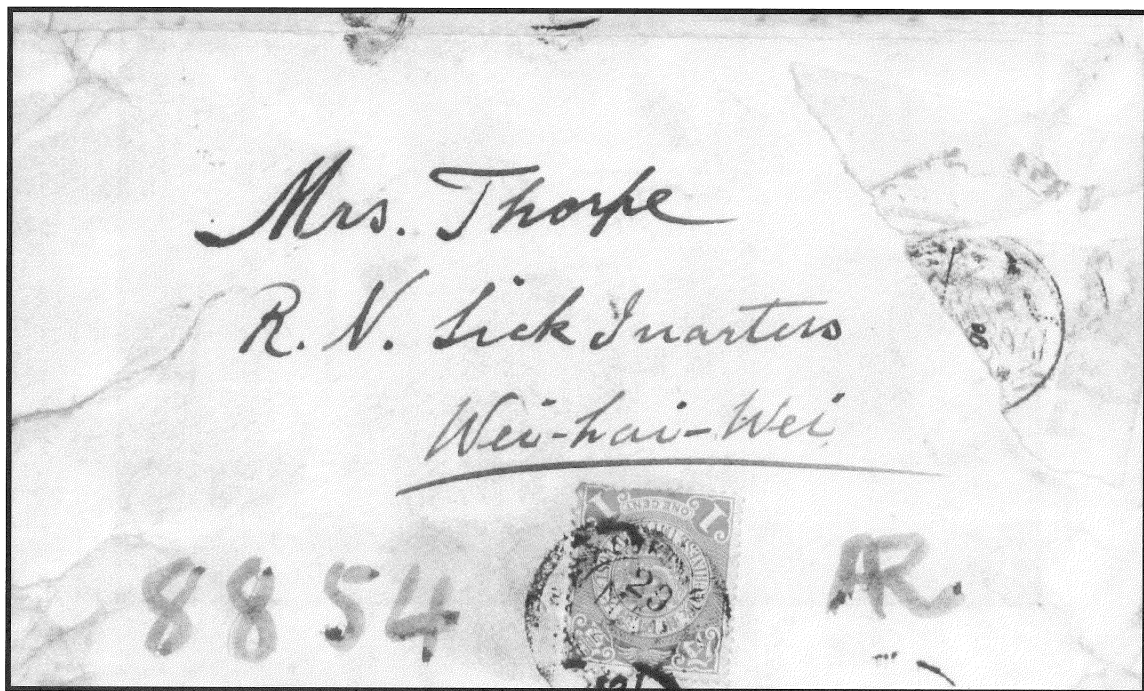 Mrs. Thorpe
R. N. Sick Quarters
Wei-hai-Wei
1 ONE CENT 1
29
8854
AR.